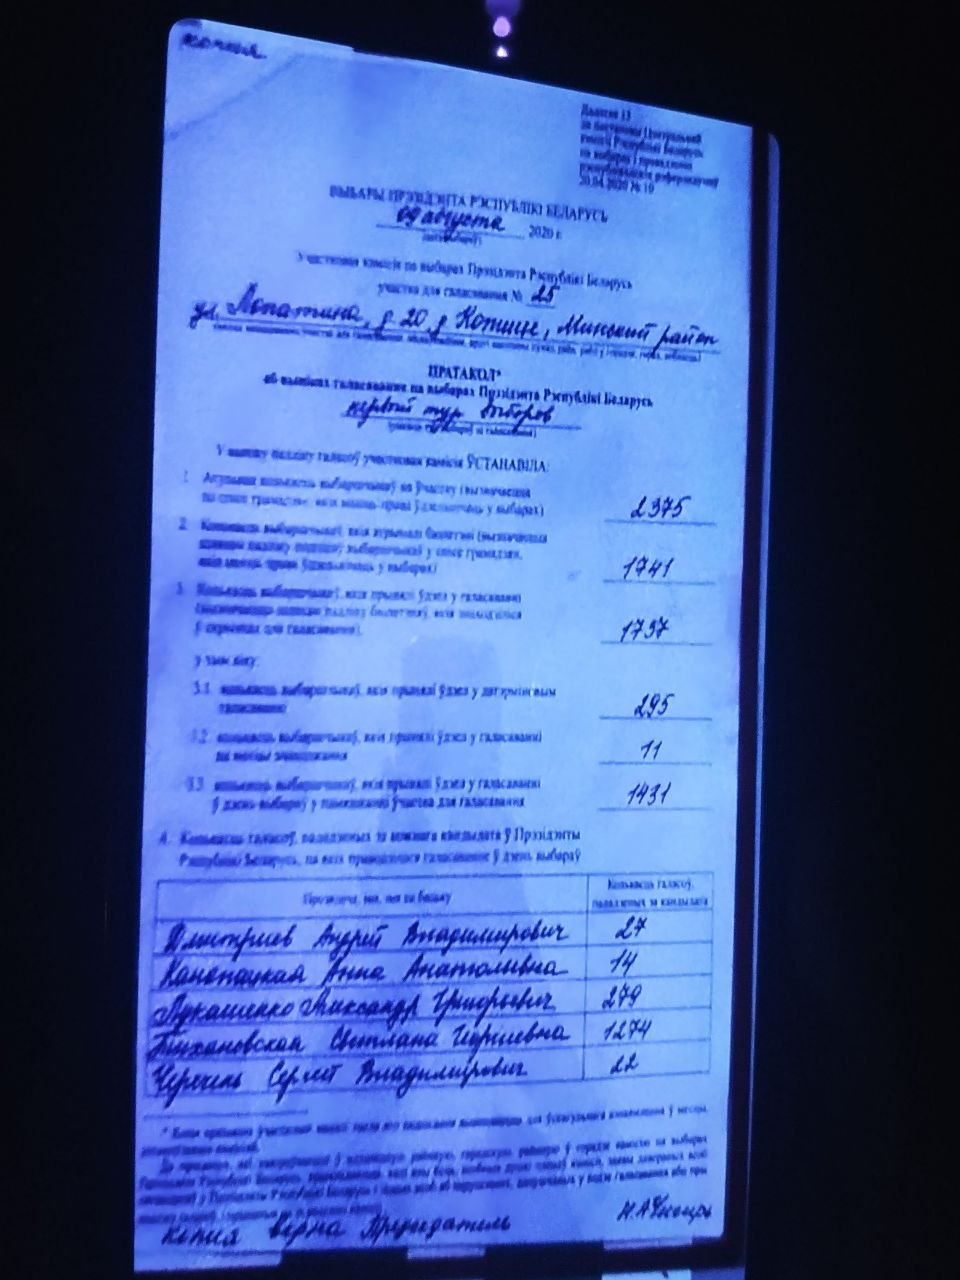 копия
Дадатак 13
да пастановы Цэнтральнай
камісіі Рэспублікі Беларусь
па выбарах і правядзенні
рэспубліканскіх рэферэндумаў
20.04.2020 № 19
ВЫБАРЫ ПРЭЗІДЭНТА РЭСПУБЛІКІ БЕЛАРУСЬ
09 августа 2020 г.
(дата выбараў)
Участковая камісія па выбарах Прэзідэнта Рэспублікі Беларусь
участка для галасавання № 25
ул. Лопатина, д. 20 д Копище, Минский район
ПРАТАКОЛ*
аб выніках галасавання па выбарах Прэзідэнта Рэспублікі Беларусь
первый тур выборов
У выніку падліку галасоў участковая камісія ЎСТАНАВІЛА:
1. Агульная колькасць выбаршчыкаў на ўчастку (вызначаецца
па спісе грамадзян, якія маюць права ўдзельнічаць у выбарах) 2375
2. Колькасць выбаршчыкаў, якія атрымалі бюлетэні (вызначаецца
шляхам падліку подпісаў выбаршчыкаў у спісе грамадзян,
якія маюць права ўдзельнічаць у выбарах) 1741
3. Колькасць выбаршчыкаў, якія прынялі ўдзел у галасаванні
(вызначаецца шляхам падліку бюлетэняў, якія знаходзіліся
ў скрынках для галасавання), 1737
у тым ліку:
3.1. колькасць выбаршчыкаў, якія прынялі ўдзел у датэрміновым
галасаванні 295
3.2. колькасць выбаршчыкаў, якія прынялі ўдзел у галасаванні
па месцы знаходжання 11
3.3. колькасць выбаршчыкаў, якія прынялі ўдзел у галасаванні
ў дзень выбараў у памяшканні ўчастка для галасавання 1431
4. Колькасць галасоў, пададзеных за кожнага кандыдата ў Прэзідэнты
Рэспублікі Беларусь, па якіх праводзілася галасаванне ў дзень выбараў
Прозвішча, імя, імя па бацьку Колькасць галасоў,
пададзеных за кандыдата
Дмитриев Андрей Владимирович 27
Канопацкая Анна Анатольевна 14
Лукашенко Александр Григорьевич 279
Тихановская Светлана Георгиевна 1274
Черечень Сергей Владимирович 22
копия верна Председатель